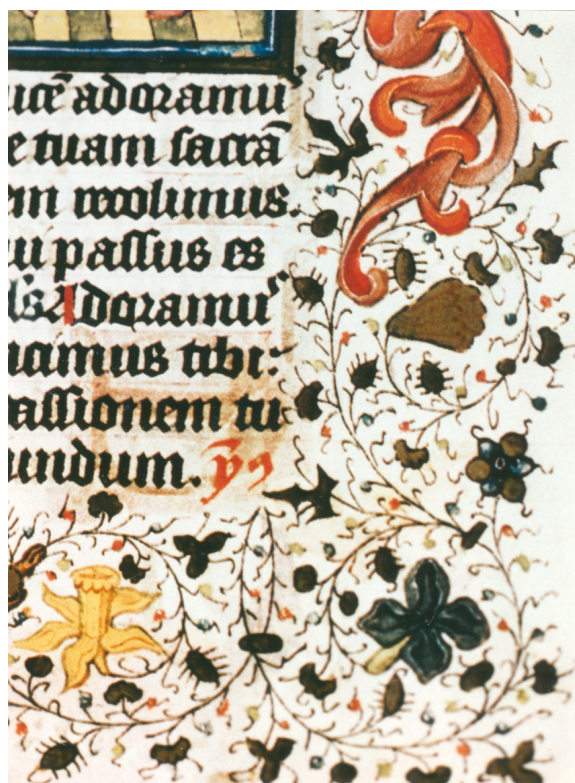 ucē adoramu᷒
e tuam sacrā
em recolimus.
u passus es
l's Adoramu᷒
icimus tibi:
assionem tu
undum. v̄9